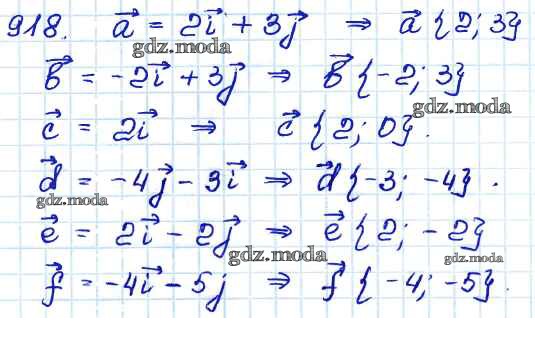 918. a⃗ = 2i⃗ + 3j⃗ ⇒ a⃗ {2; 3}
gdz.moda
b⃗ = -2i⃗ + 3j⃗ ⇒ b⃗ {-2; 3}
gdz.moda
c⃗ = 2i⃗ ⇒ c⃗ {2; 0}.
d⃗ = -4j⃗ - 3i⃗ ⇒ d⃗ {-3; -4}.
gdz.moda
e⃗ = 2i⃗ - 2j⃗ ⇒ e⃗ {2; -2}
gdz.moda
gdz.moda
f⃗ = -4i⃗ - 5j ⇒ f⃗ {-4; -5}.